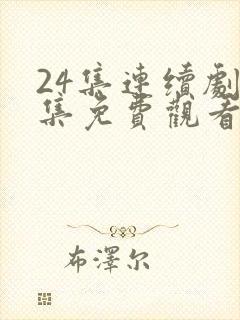 24集連續劇
集免費觀看
布澤尔